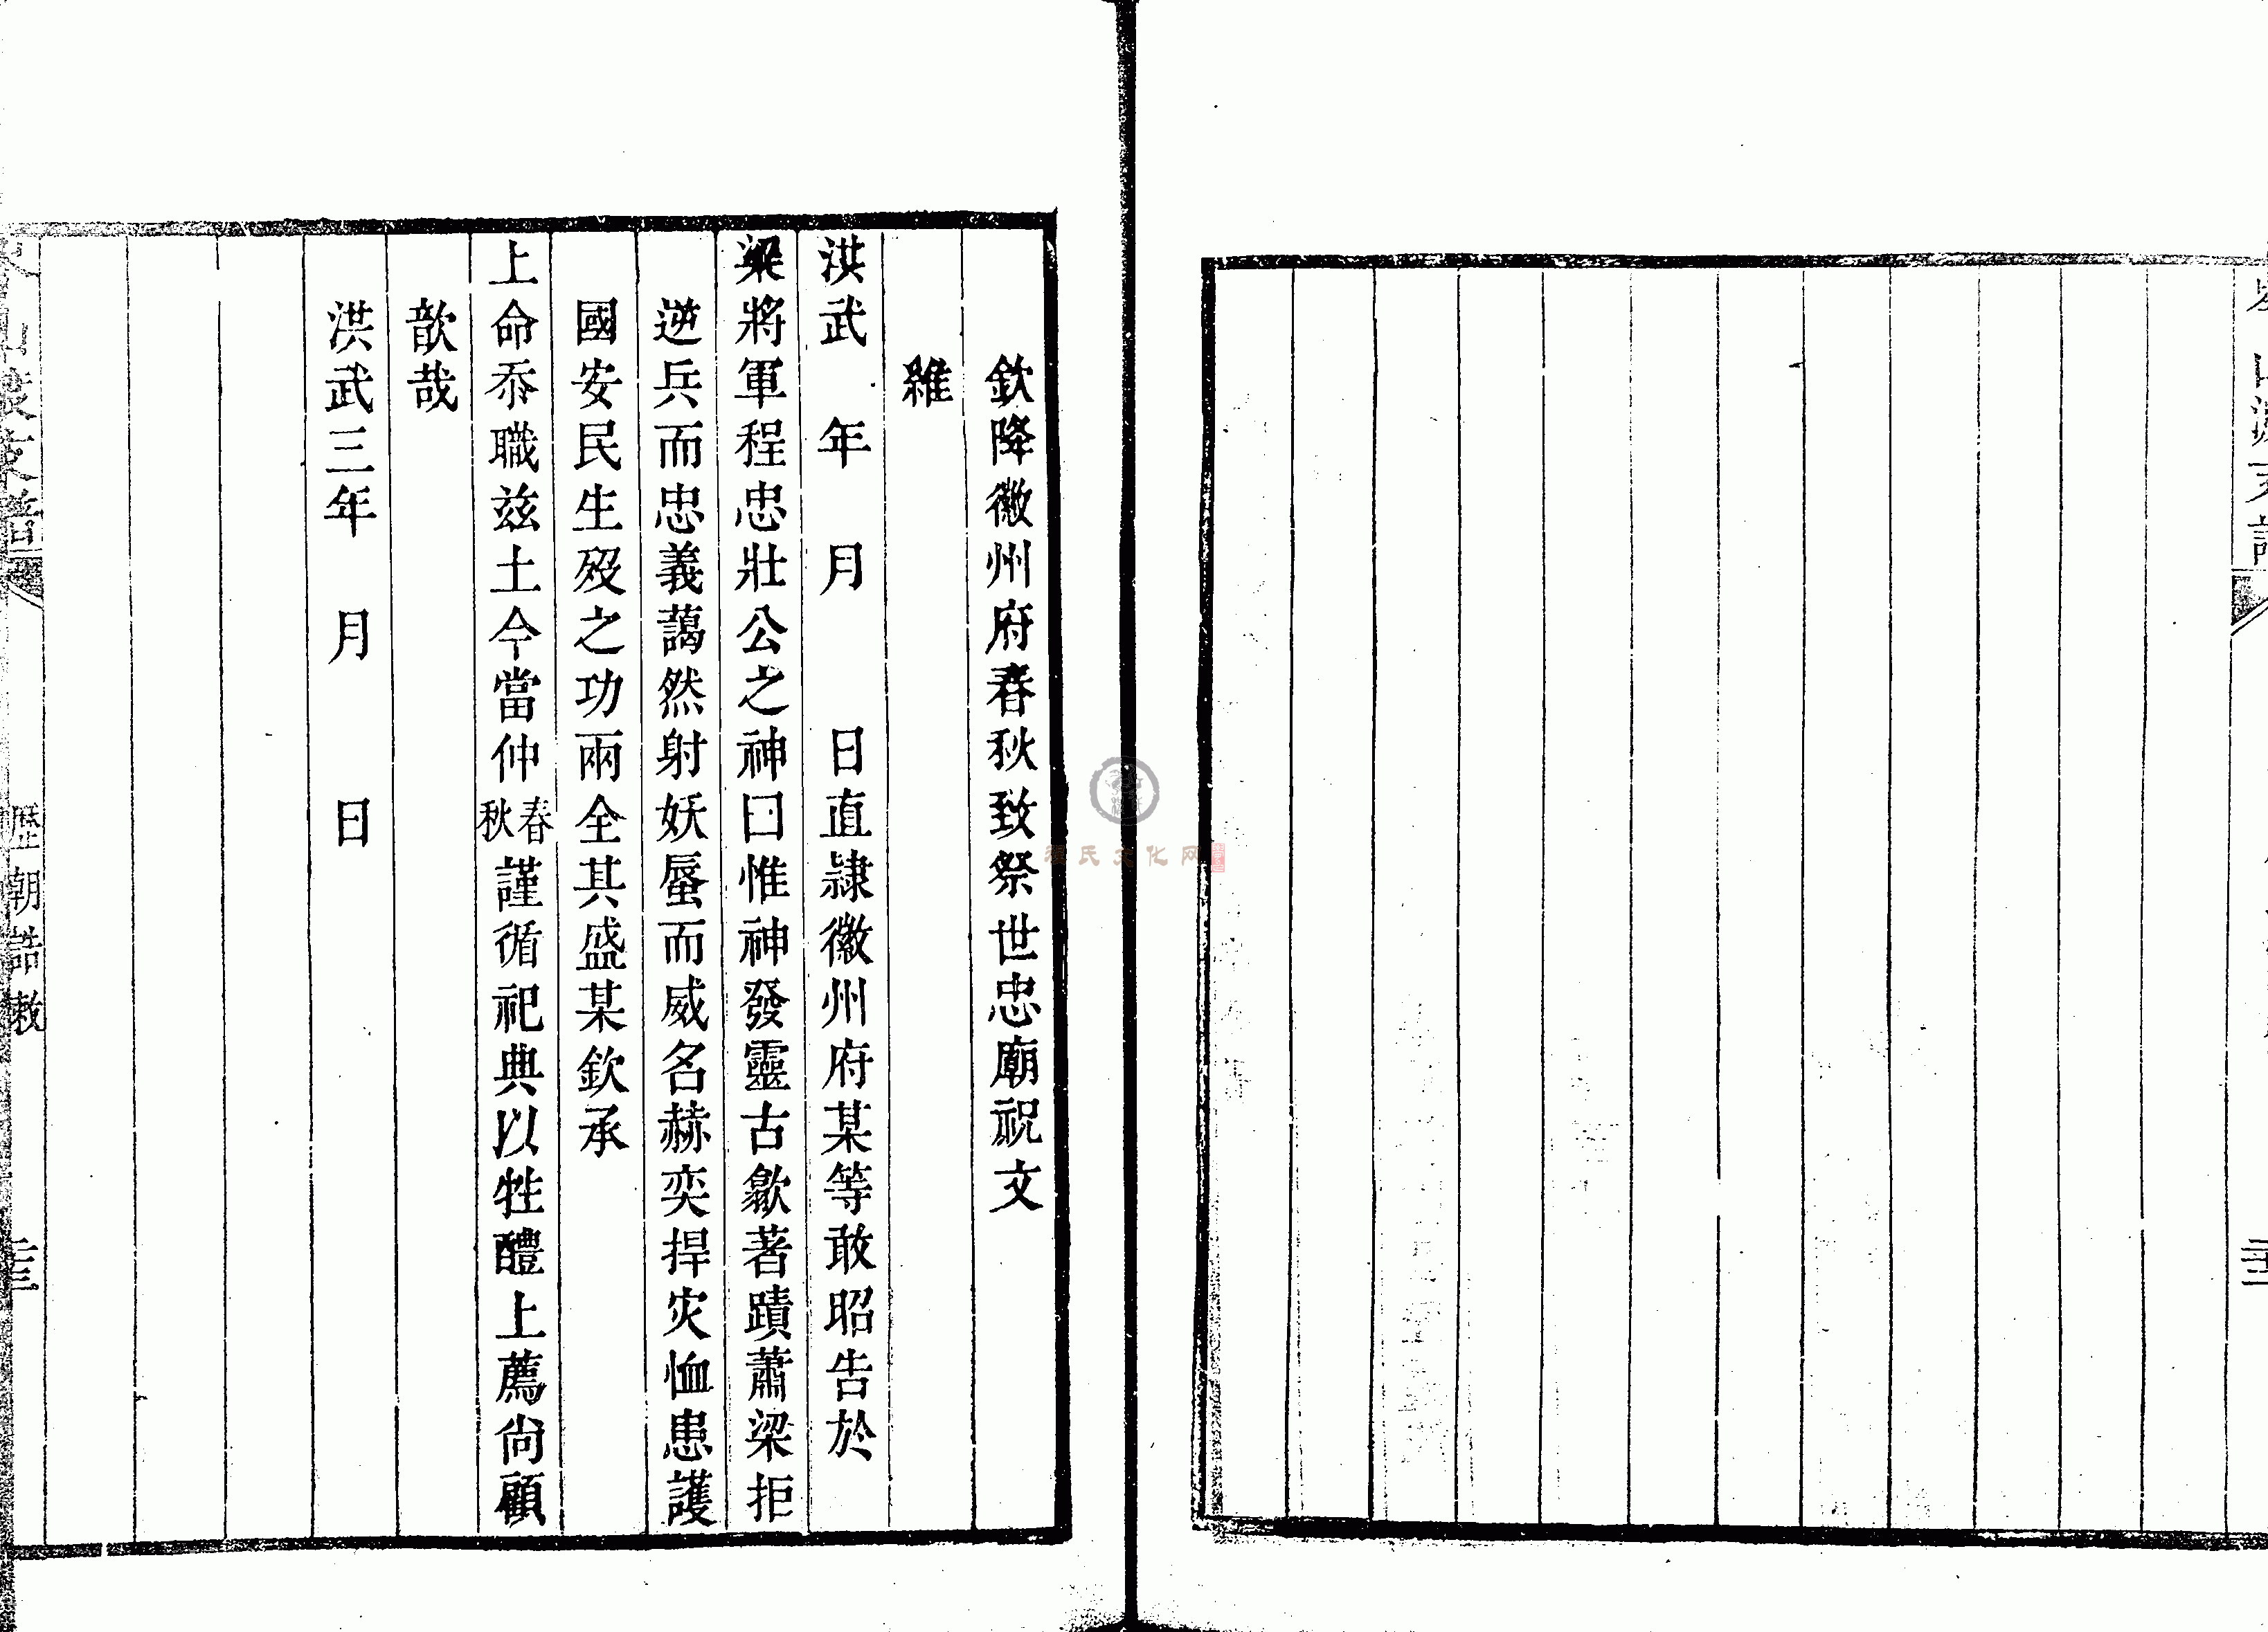 欽降徽州府春秋致祭世忠廟祝文
維
洪武　年　月　日直隷徽州府某等敢昭告於
梁將軍程忠壯公之神曰惟神發靈古歙著蹟蕭梁拒
逆兵而忠義藹然射妖蜃而威名赫奕捍灾恤患護
國安民生殁之功兩全其盛某欽承
上命忝職兹土今當仲春秋謹循祀典以牲醴上薦尙顧
歆哉
洪武三年　月　日
歷朝誥敕
程氏文化网